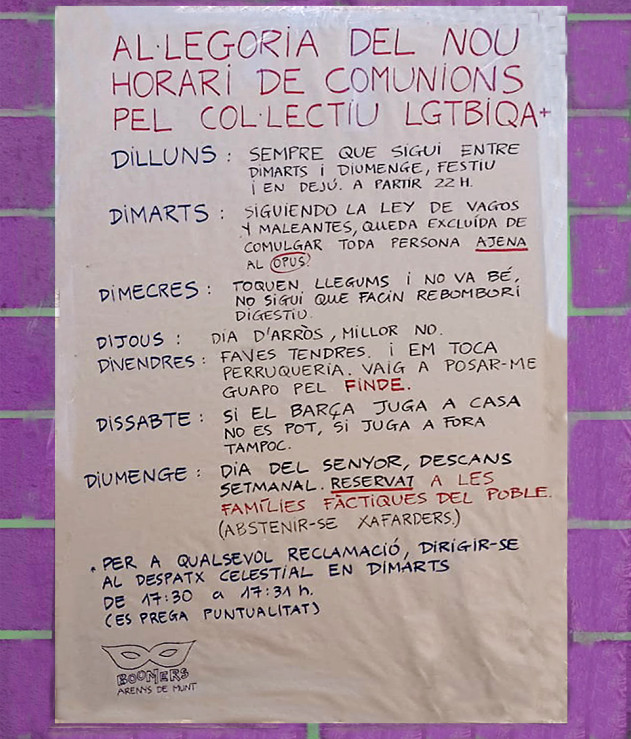 AL·LEGORIA DEL NOU
HORARI DE COMUNIONS
PEL COL·LECTIU LGTBIQA+
DILLUNS : SEMPRE QUE SIGUI ENTRE
DIMARTS I DIUMENGE, FESTIU
I EN DEJÚ. A PARTIR 22 H.
DIMARTS : SIGUIENDO LA LEY DE VAGOS
Y MALEANTES, QUEDA EXCLUÍDA DE
COMULGAR TODA PERSONA AJENA
AL OPUS.
DIMECRES : TOQUEN LLEGUMS I NO VA BÉ,
NO SIGUI QUE FACIN REBOMBORI
DIGESTIU.
DIJOUS : DIA D'ARRÒS, MILLOR NO.
DIVENDRES : FAVES TENDRES. I EM TOCA
PERRUQUERIA. VAIG A POSAR-ME
GUAPO PEL FINDE.
DISSABTE : SI EL BARÇA JUGA A CASA
NO ES POT, SI JUGA A FORA
TAMPOC.
DIUMENGE : DIA DEL SENYOR, DESCANS
SETMANAL. RESERVAT A LES
FAMÍLIES FÀCTIQUES DEL POBLE.
(ABSTENIR-SE XAFARDERS.)
* PER A QUALSEVOL RECLAMACIÓ, DIRIGIR-SE
AL DESPATX CELESTIAL EN DIMARTS
DE 17:30 a 17:31 h.
(ES PREGA PUNTUALITAT)
BOOMERS
ARENYS DE MUNT